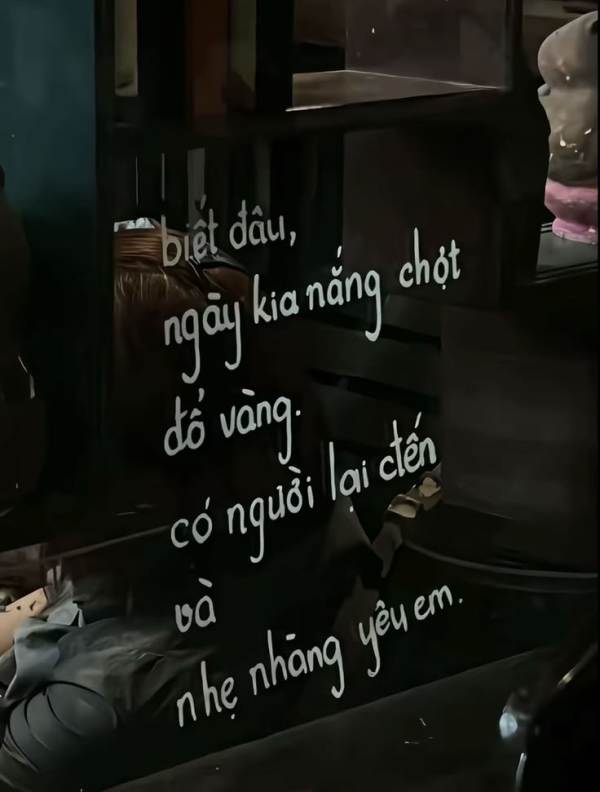 biết đâu,
ngày kia nắng chợt
đổ vàng.
có người lại đến
và
nhẹ nhàng yêu em.